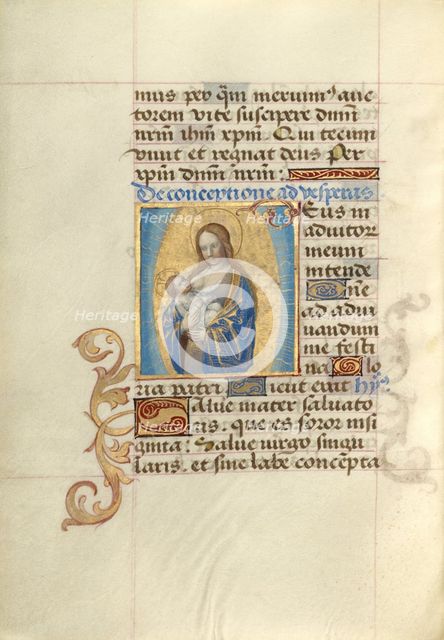 mus per q̄m meruim⁹ auc
torem vite suscipere dn̄m
nr̄m ihm̄ xp̄m. Qui tecum
viuit et regnat deus Per
xp̄m dn̄m nr̄m:
De conceptione ad vesperas
Eus in
adiutor
meum
intende
Dne
ad adiu
uandum
me festi
na Glo
ria patri Sicut erat hy⁹
Salue mater saluato
ris. que es soror insi
gnita: Salue virgo singu
laris. et sine labe concepta
Heritage